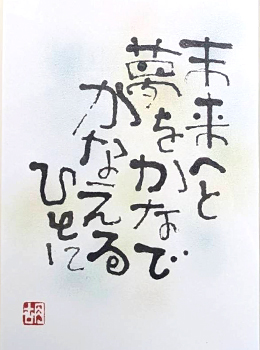 未来へと
夢をかなで
かなえる
ひとに